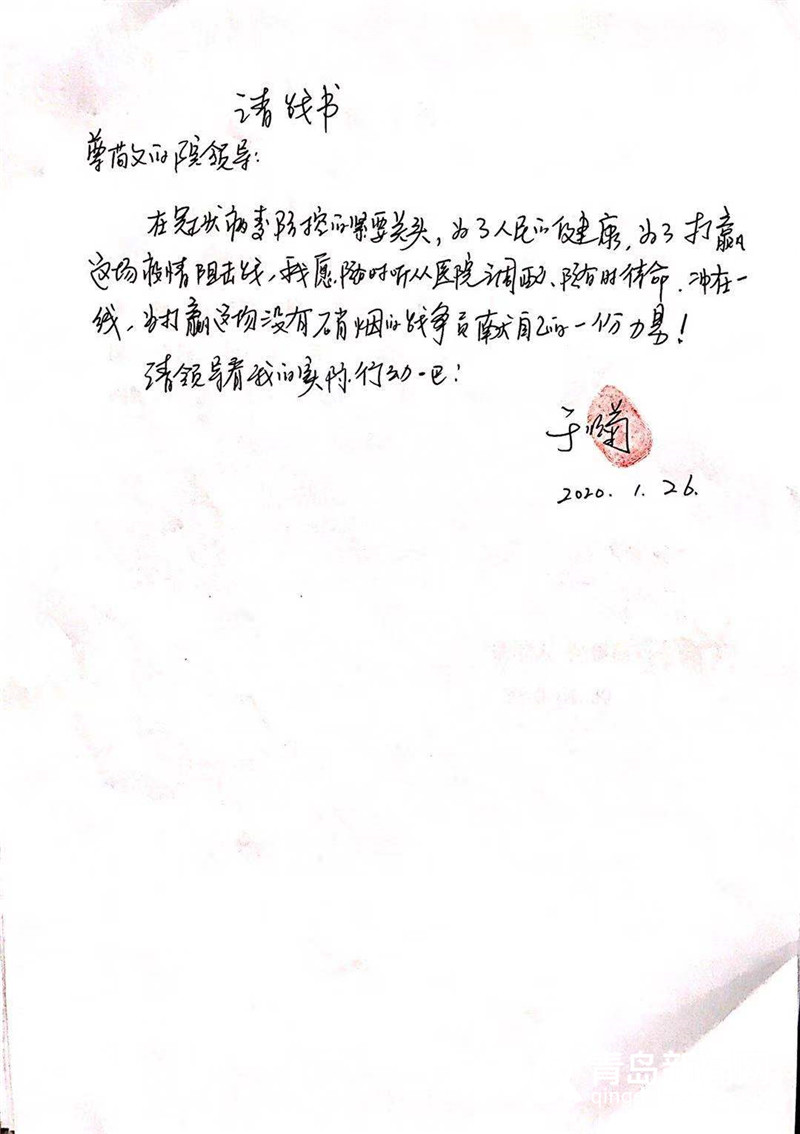 请战书
尊敬的院领导:
在冠状病毒防控的紧要关头,为了人民的健康,为了打赢
这场疫情阻击战,我愿随时听从医院调配、随时待命,冲在一
线,为打赢这场没有硝烟的战争贡献自己的一份力量!
请领导看我的实际行动吧!
于 菊
2020.1.26.
青岛新
qingd